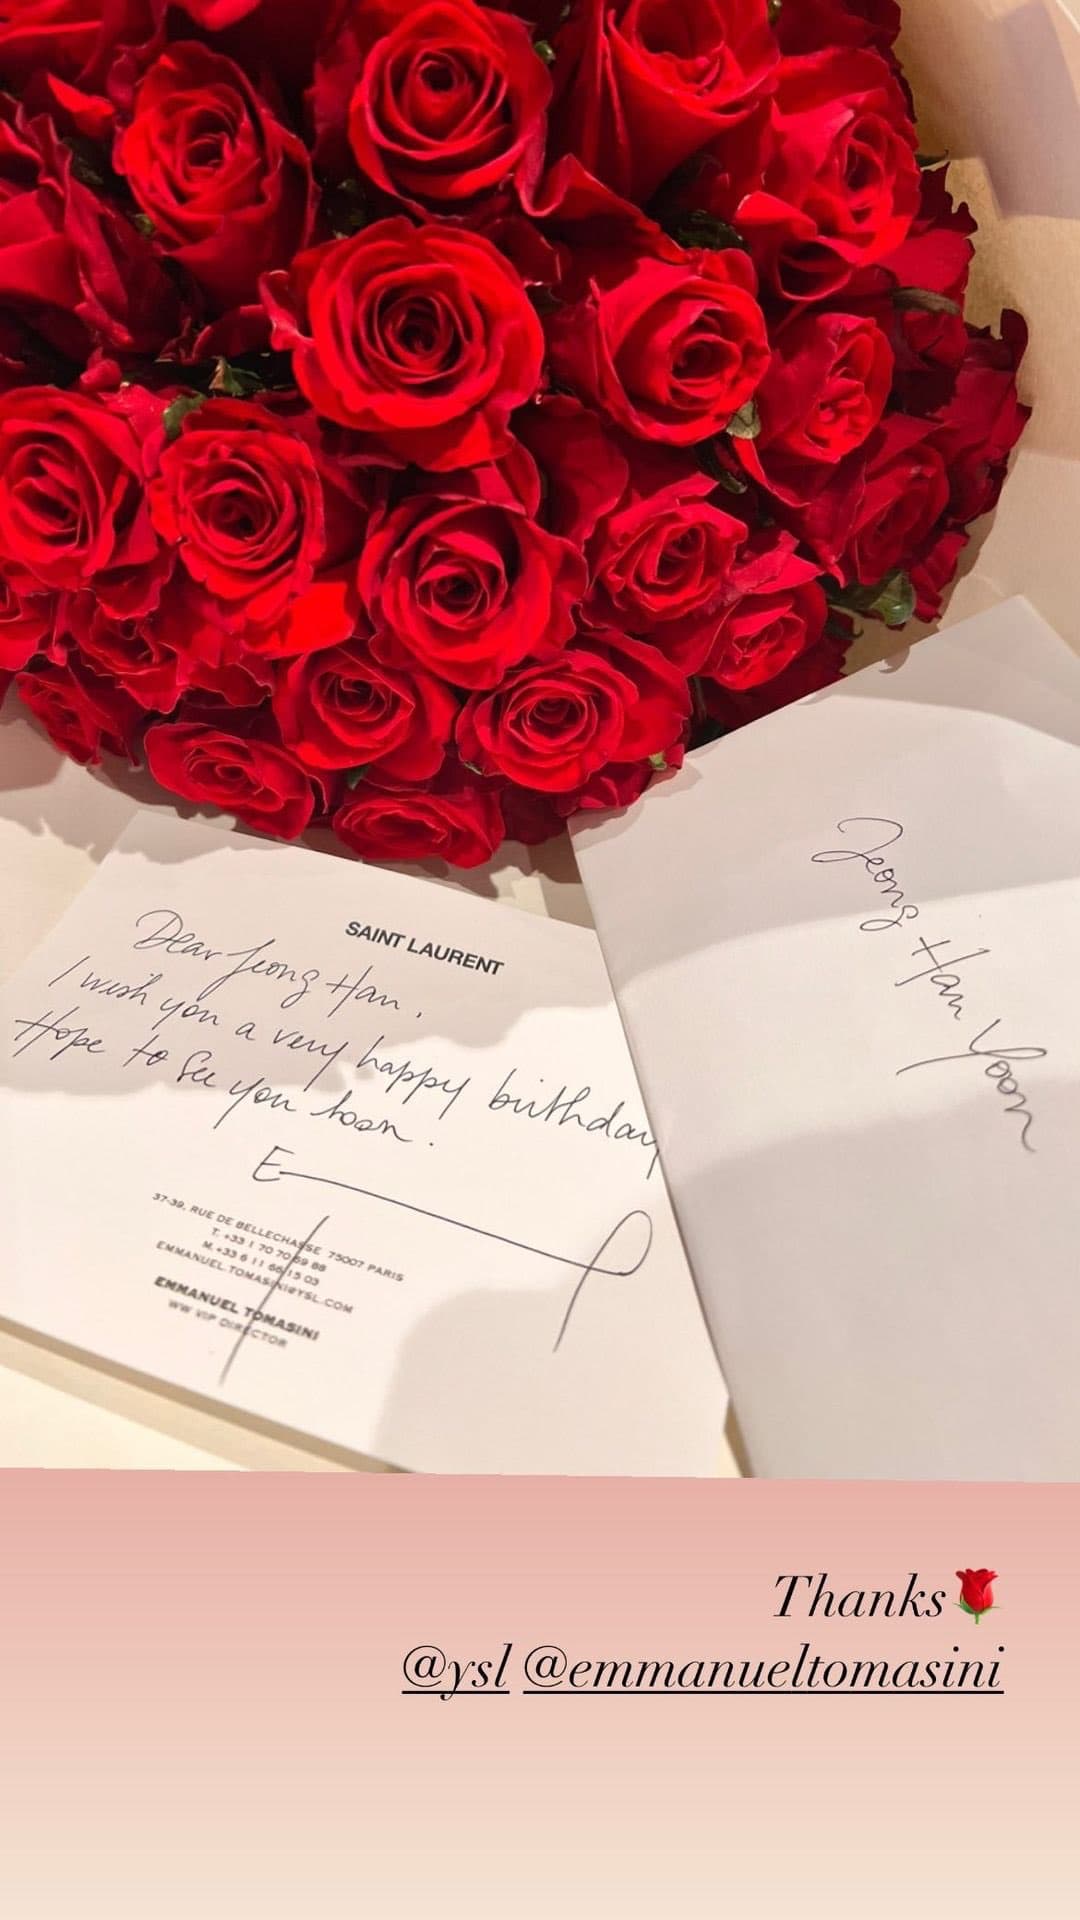 SAINT LAURENT
Dear Jeong Han,
I wish you a very happy birthday
Hope to see you soon.
E
37-39, RUE DE BELLECHASSE 75007 PARIS
T. +33 1 70 70 69 88
M. +33 6 11 66 15 03
EMMANUEL.TOMASINI@YSL.COM
EMMANUEL TOMASINI
WW VIP DIRECTOR
Jeong Han Yoon
Thanks🌹
@ysl @emmanueltomasini